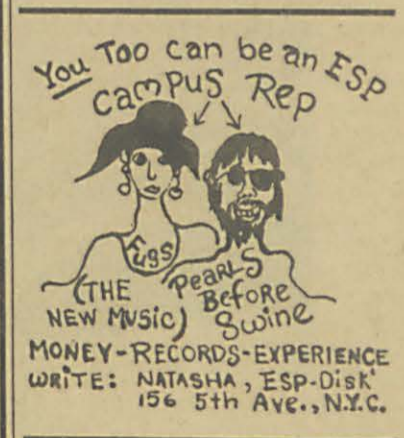 You Too can be an ESP
Campus Rep
Fugs
(THE
NEW MUSIC)
PEARLS
BEFORE
Swine
MONEY-RECORDS-EXPERIENCE
WRITE: NATASHA, ESP-Disk'
156 5th Ave., N.Y.C.